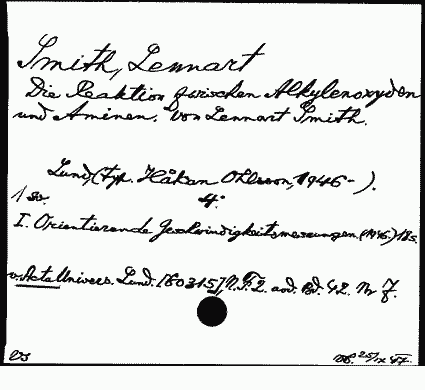 Smith, Lennart
Die Reaktion zwischen Alkylenoxyden
und Aminen. Von Lennart Smith.
Lund, (typ. Håkan Ohlsson, 1946- ).
4:
I. Orientierende Geschwindigkeitsmessungen. (1946.) 18s.
v. Acta Univers. Lund. [60315], N.F. 2. avd. Bd. 42. Nr 7.